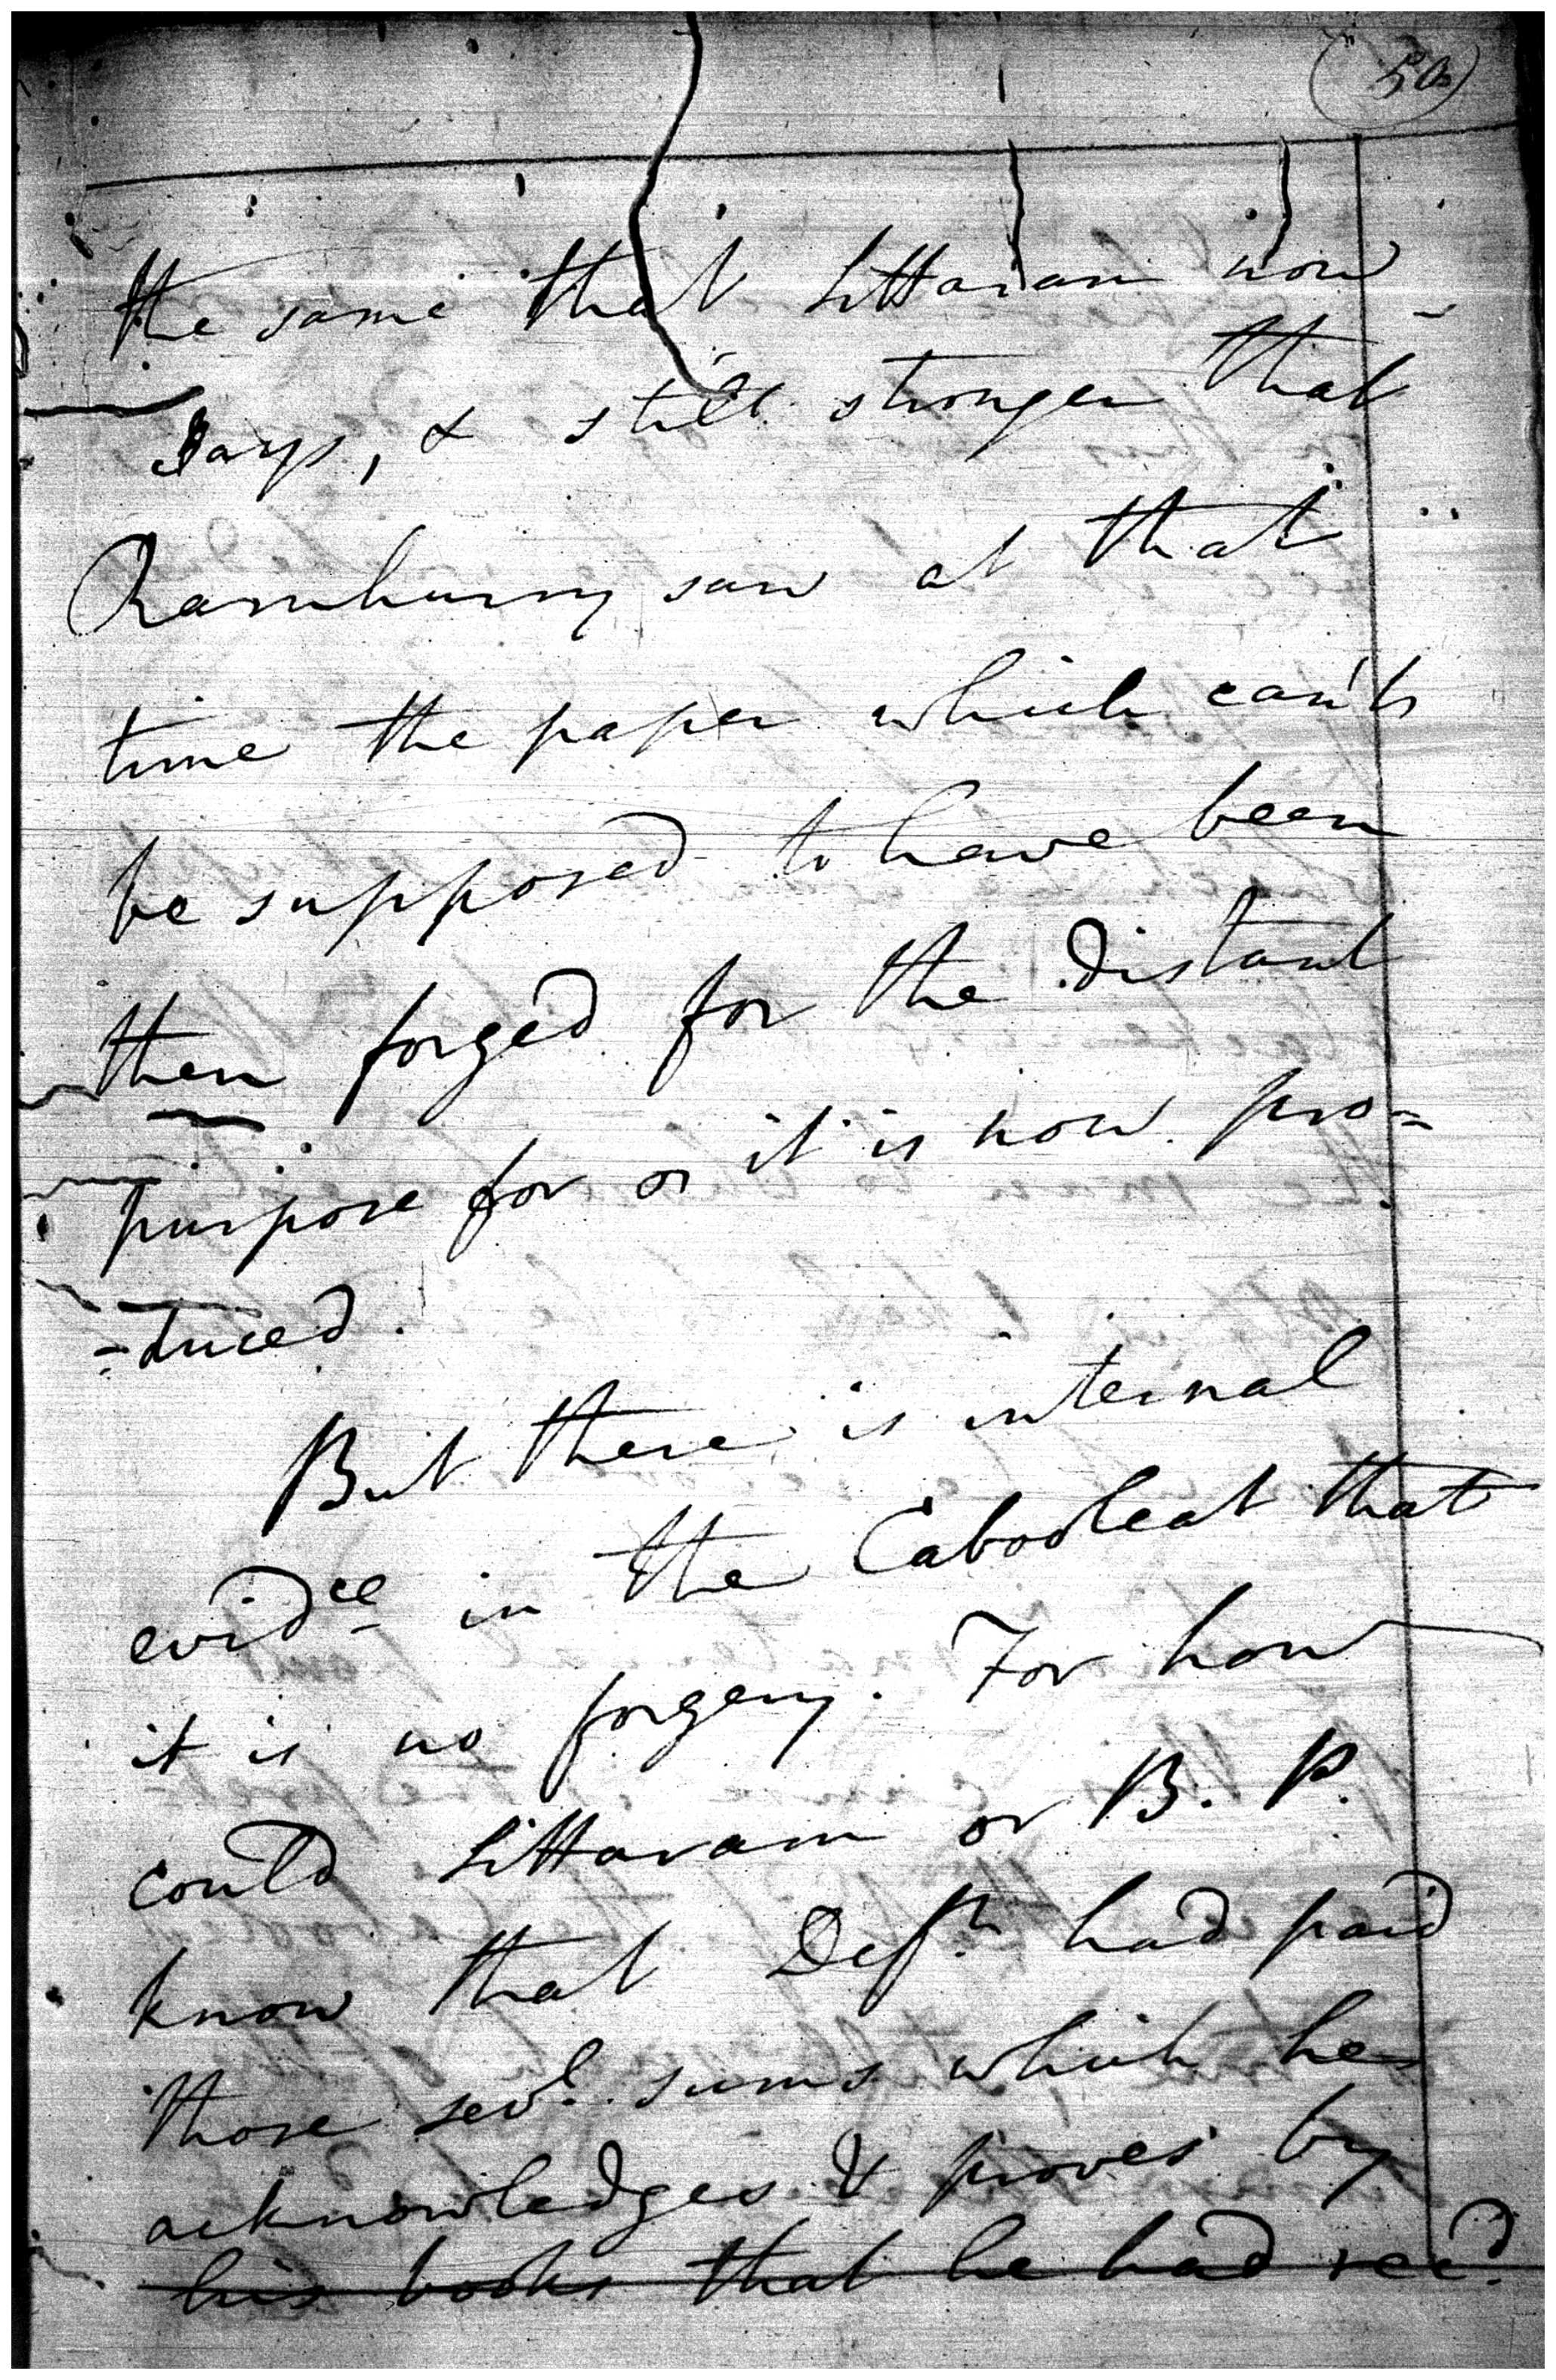 (50)
the same that Sittaram now
says, & still stronger that
Ramhurry saw at that
time the paper which can't
be supposed to have been
then forged for the distant
purpose for wh it is now pro=
=duced.
But there is internal
evidce in the Cabooleat that
it is no forgery. For how
could Sittaram or B. P.
know that Deft had paid
those sevl sums which he
acknowledges & proves by
his books that he had recd.